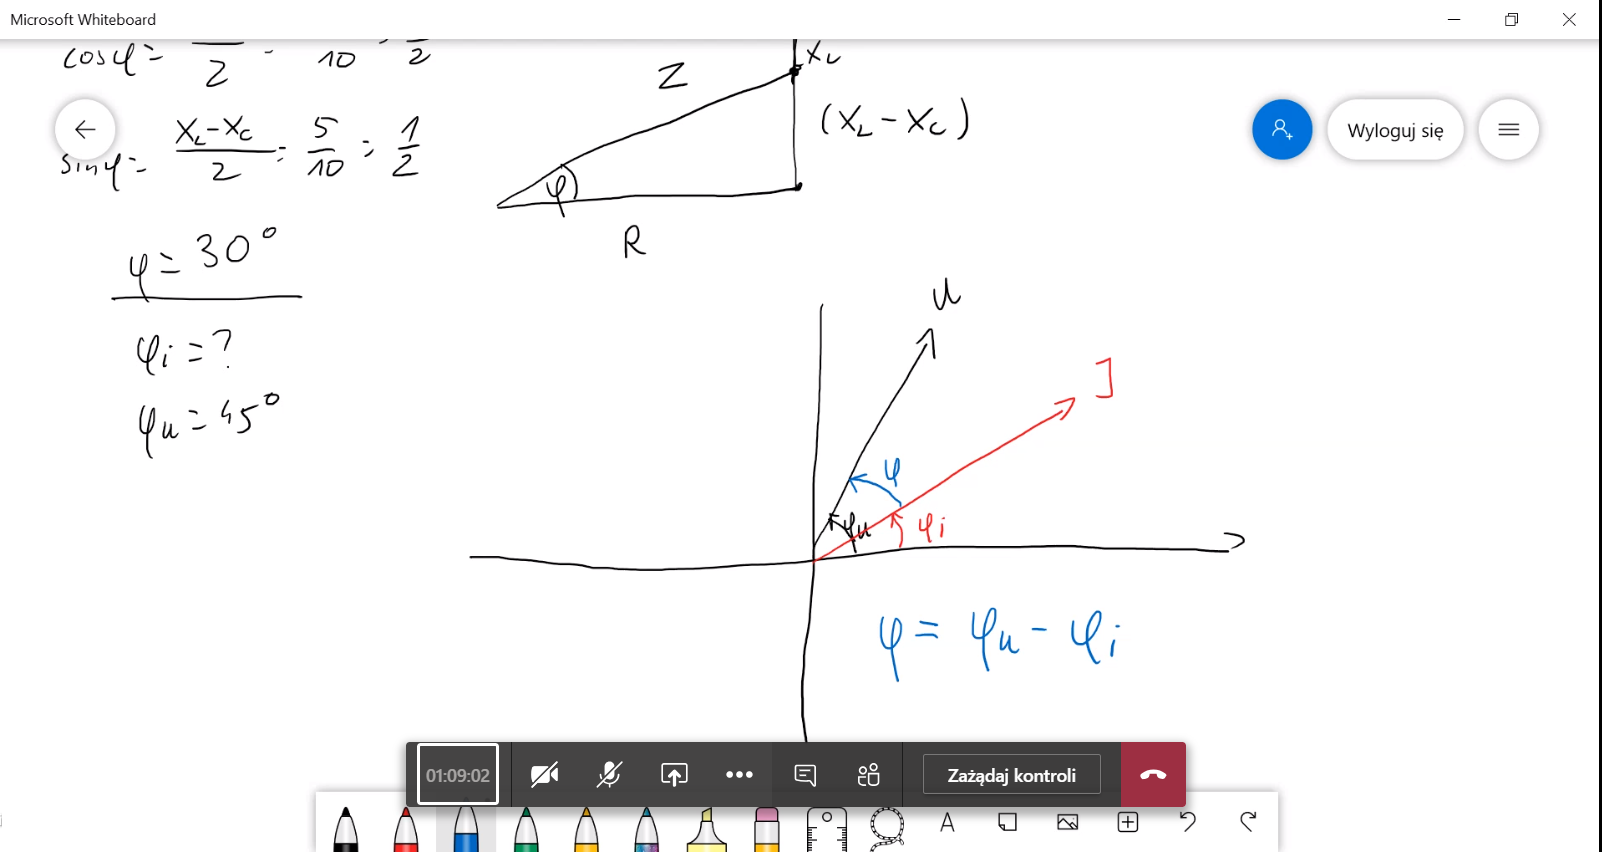 Microsoft Whiteboard
cos φ = /2 = /10 = /2
sin φ = (X_L - X_C)/2 = 5/10 = 1/2
φ = 30°
φi = ?
φu = 45°
Z
X_L
(X_L - X_C)
φ
R
Wyloguj się
U
I
φ
φu
φi
φ = φu - φi
01:09:02
Zażądaj kontroli
A